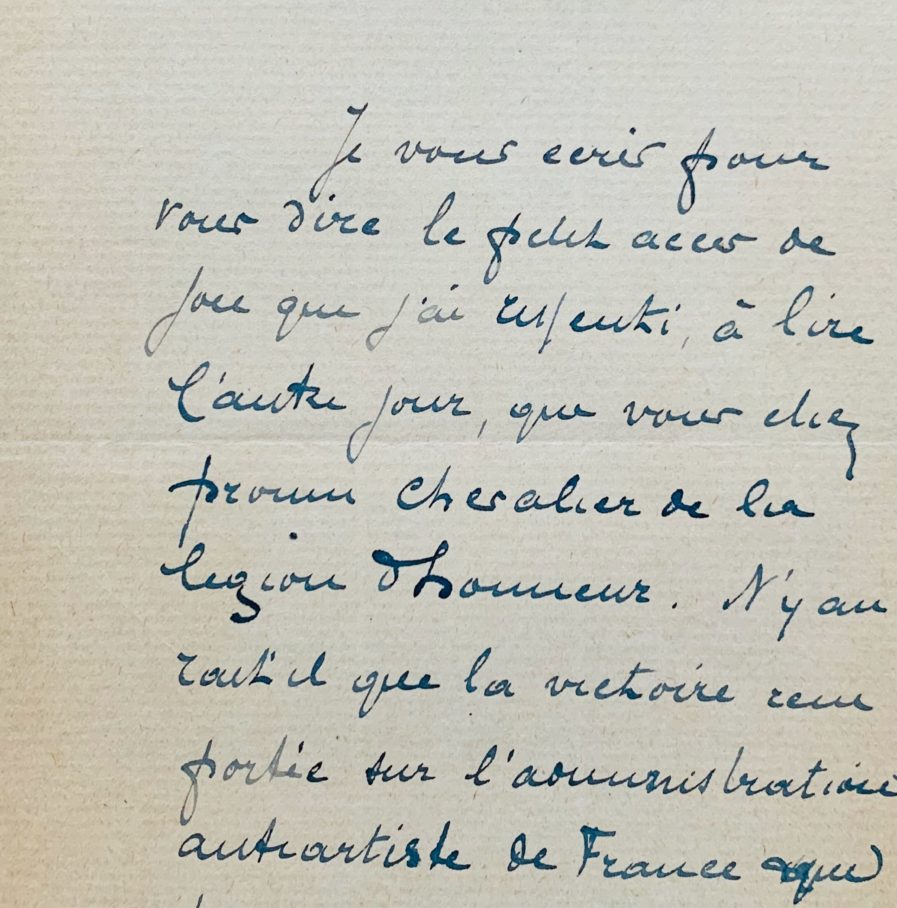 Je vous ecris pour
vous dire le petit acces de
joie que j'ai ressenti, à lire
l'autre jour, que vous etiez
promu chevalier de la
legion d'honneur. N'y au
rait'il que la victoire rem
portée sur l'administration
antiartiste de France que